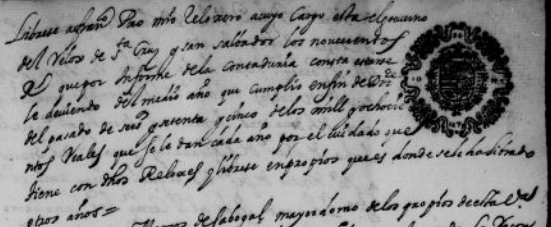 Librese a fran.co Pro mro Reloxero a cuyo Cargo esta el govierno
del Relox de S.ta Cruz y san salbador los novecientos
R.s que por Informe de la Contaduria consta estarse
le deviendo del medio año que cumplio en fin de Diz.e
del pasado de seisº y setenta y cinco de los mill y ochocie
ntos Reales que se le dan cada año por el cuidado que
tiene con dhos Reloxes y librese en propios que es donde se le ha librado
otros años =
de sabogal mayordomo de los propios de esta